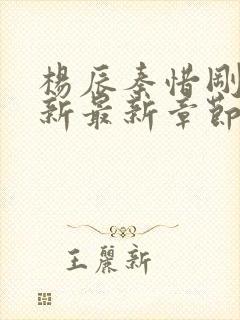 楊辰秦惜剛
新最新章節
王麗新